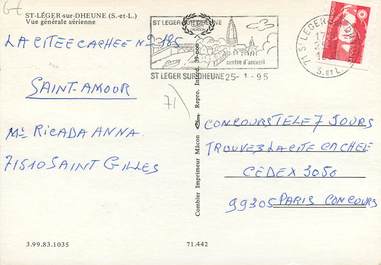 67
ST-LÉGER-sur-DHEUNE (S.-et-L.)
Vue générale aérienne
LA CITEE CACHEE N° 185
SAINT-AMOUR
71)
Me RICADA ANNA.
71510 SAINT GILLES
3.99.83.1035
Combier Imprimeur Mâcon
71.442
ST LEGER SUR DHEUNE
centre d'accueil
ST LEGER SUR DHEUNE 25-1-95
71 ST LEGER
S. et L.
CONCOURS TELE 7 JOURS
TROUVES LA CITE CACHEE
CEDEX 3050
99305 PARIS CONCOURS